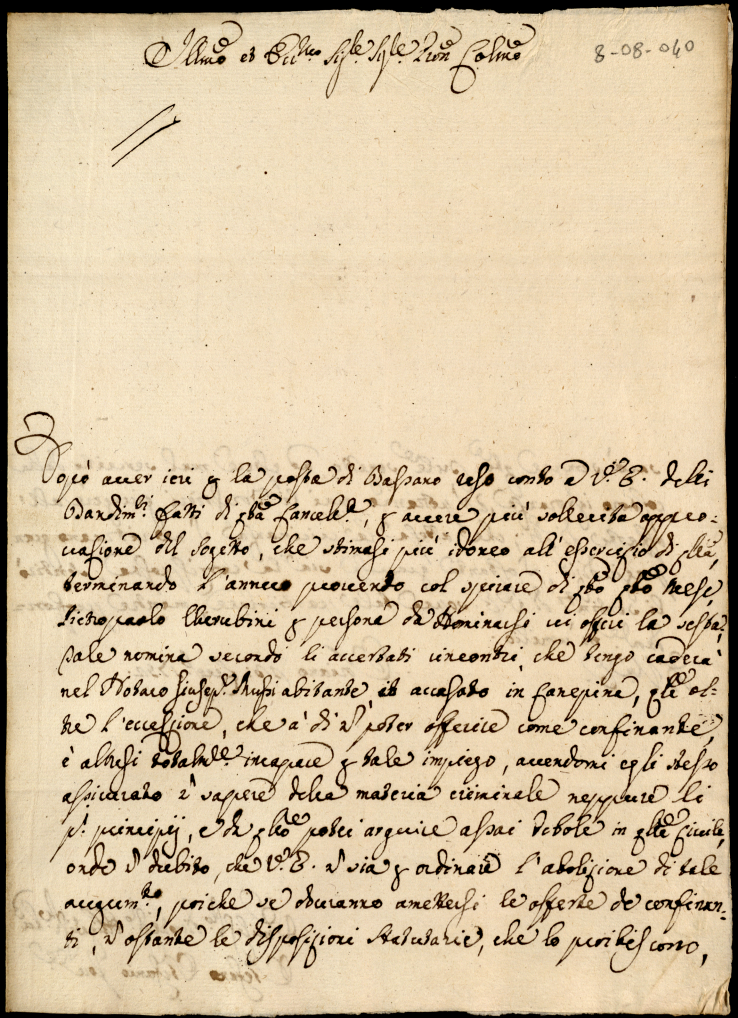 Illmo et Ecc.mo Sig.re Sig.re Pron Colmo
8-08-040
Dopò aver ieri p la posta di Bassano reso conto a V.ra E. delli
Bandim.ti fatti di qta Cancel.a, p avere più sollecita appro-
vasione del sogetto, che stimasi più idoneo all'esercisio di qlla,
terminando l'annuo provento col spirare di qto mese,
Pietropaolo Cherubini p persona da Nominarsi vi offerì la
tale nomina secondo li accertati incontri, che tengo caderà
nel Notaro Giusep.e Russi abitante, et accasato in Canepina, qle ol-
tre l'eccessione, che à di ñ poter offerire come confinante,
è altresì totalm.te incapace p tale impiego, avendomi egli stesso
assicurato ñ sapere della materia criminale neppure li
p.i principij, e da qto potei arguire assai debole in Civile,
onde ñ dubito, che V.ra E. ñ sia p ordinare l'abolizione di tale
, poiche se doveranno amettersi le offerte de confinan-
ti, ñ ostante le disposizioni Statutarie, che lo proibiscono,